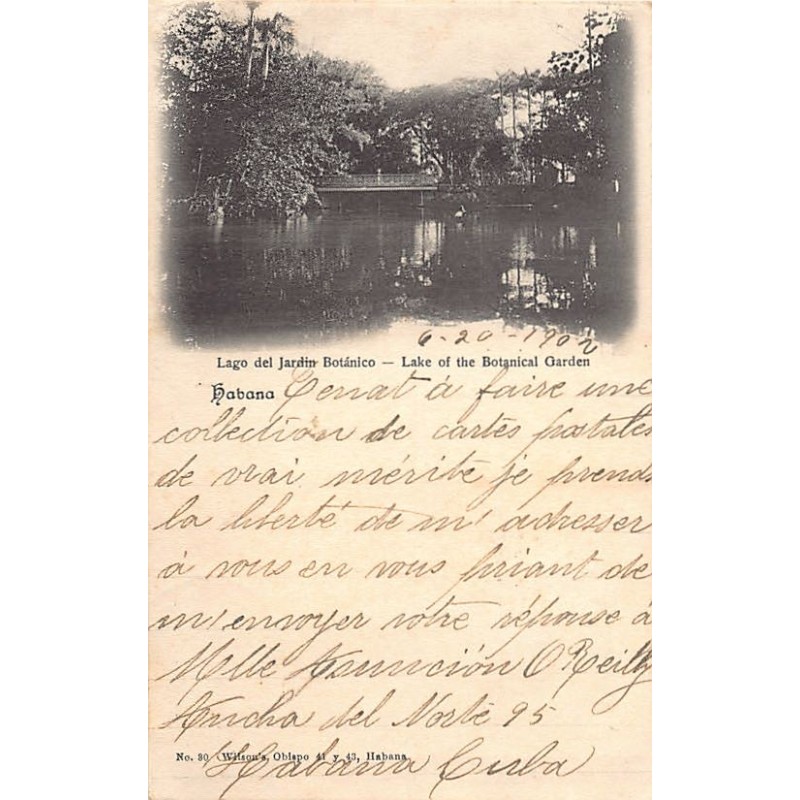 6-20-1902
Lago del Jardin Botánico — Lake of the Botanical Garden
Habana
Tenant á faire une
collection de cartes postales
de vrai mérite je prends
la liberté de m' adresser
á vous en vous priant de
m'envoyer votre réponse á
Mlle Asunción O'Reilly
Ancha del Norte 95
No. 30 Wilson's, Obispo 41 y 43, Habana.
Habana Cuba